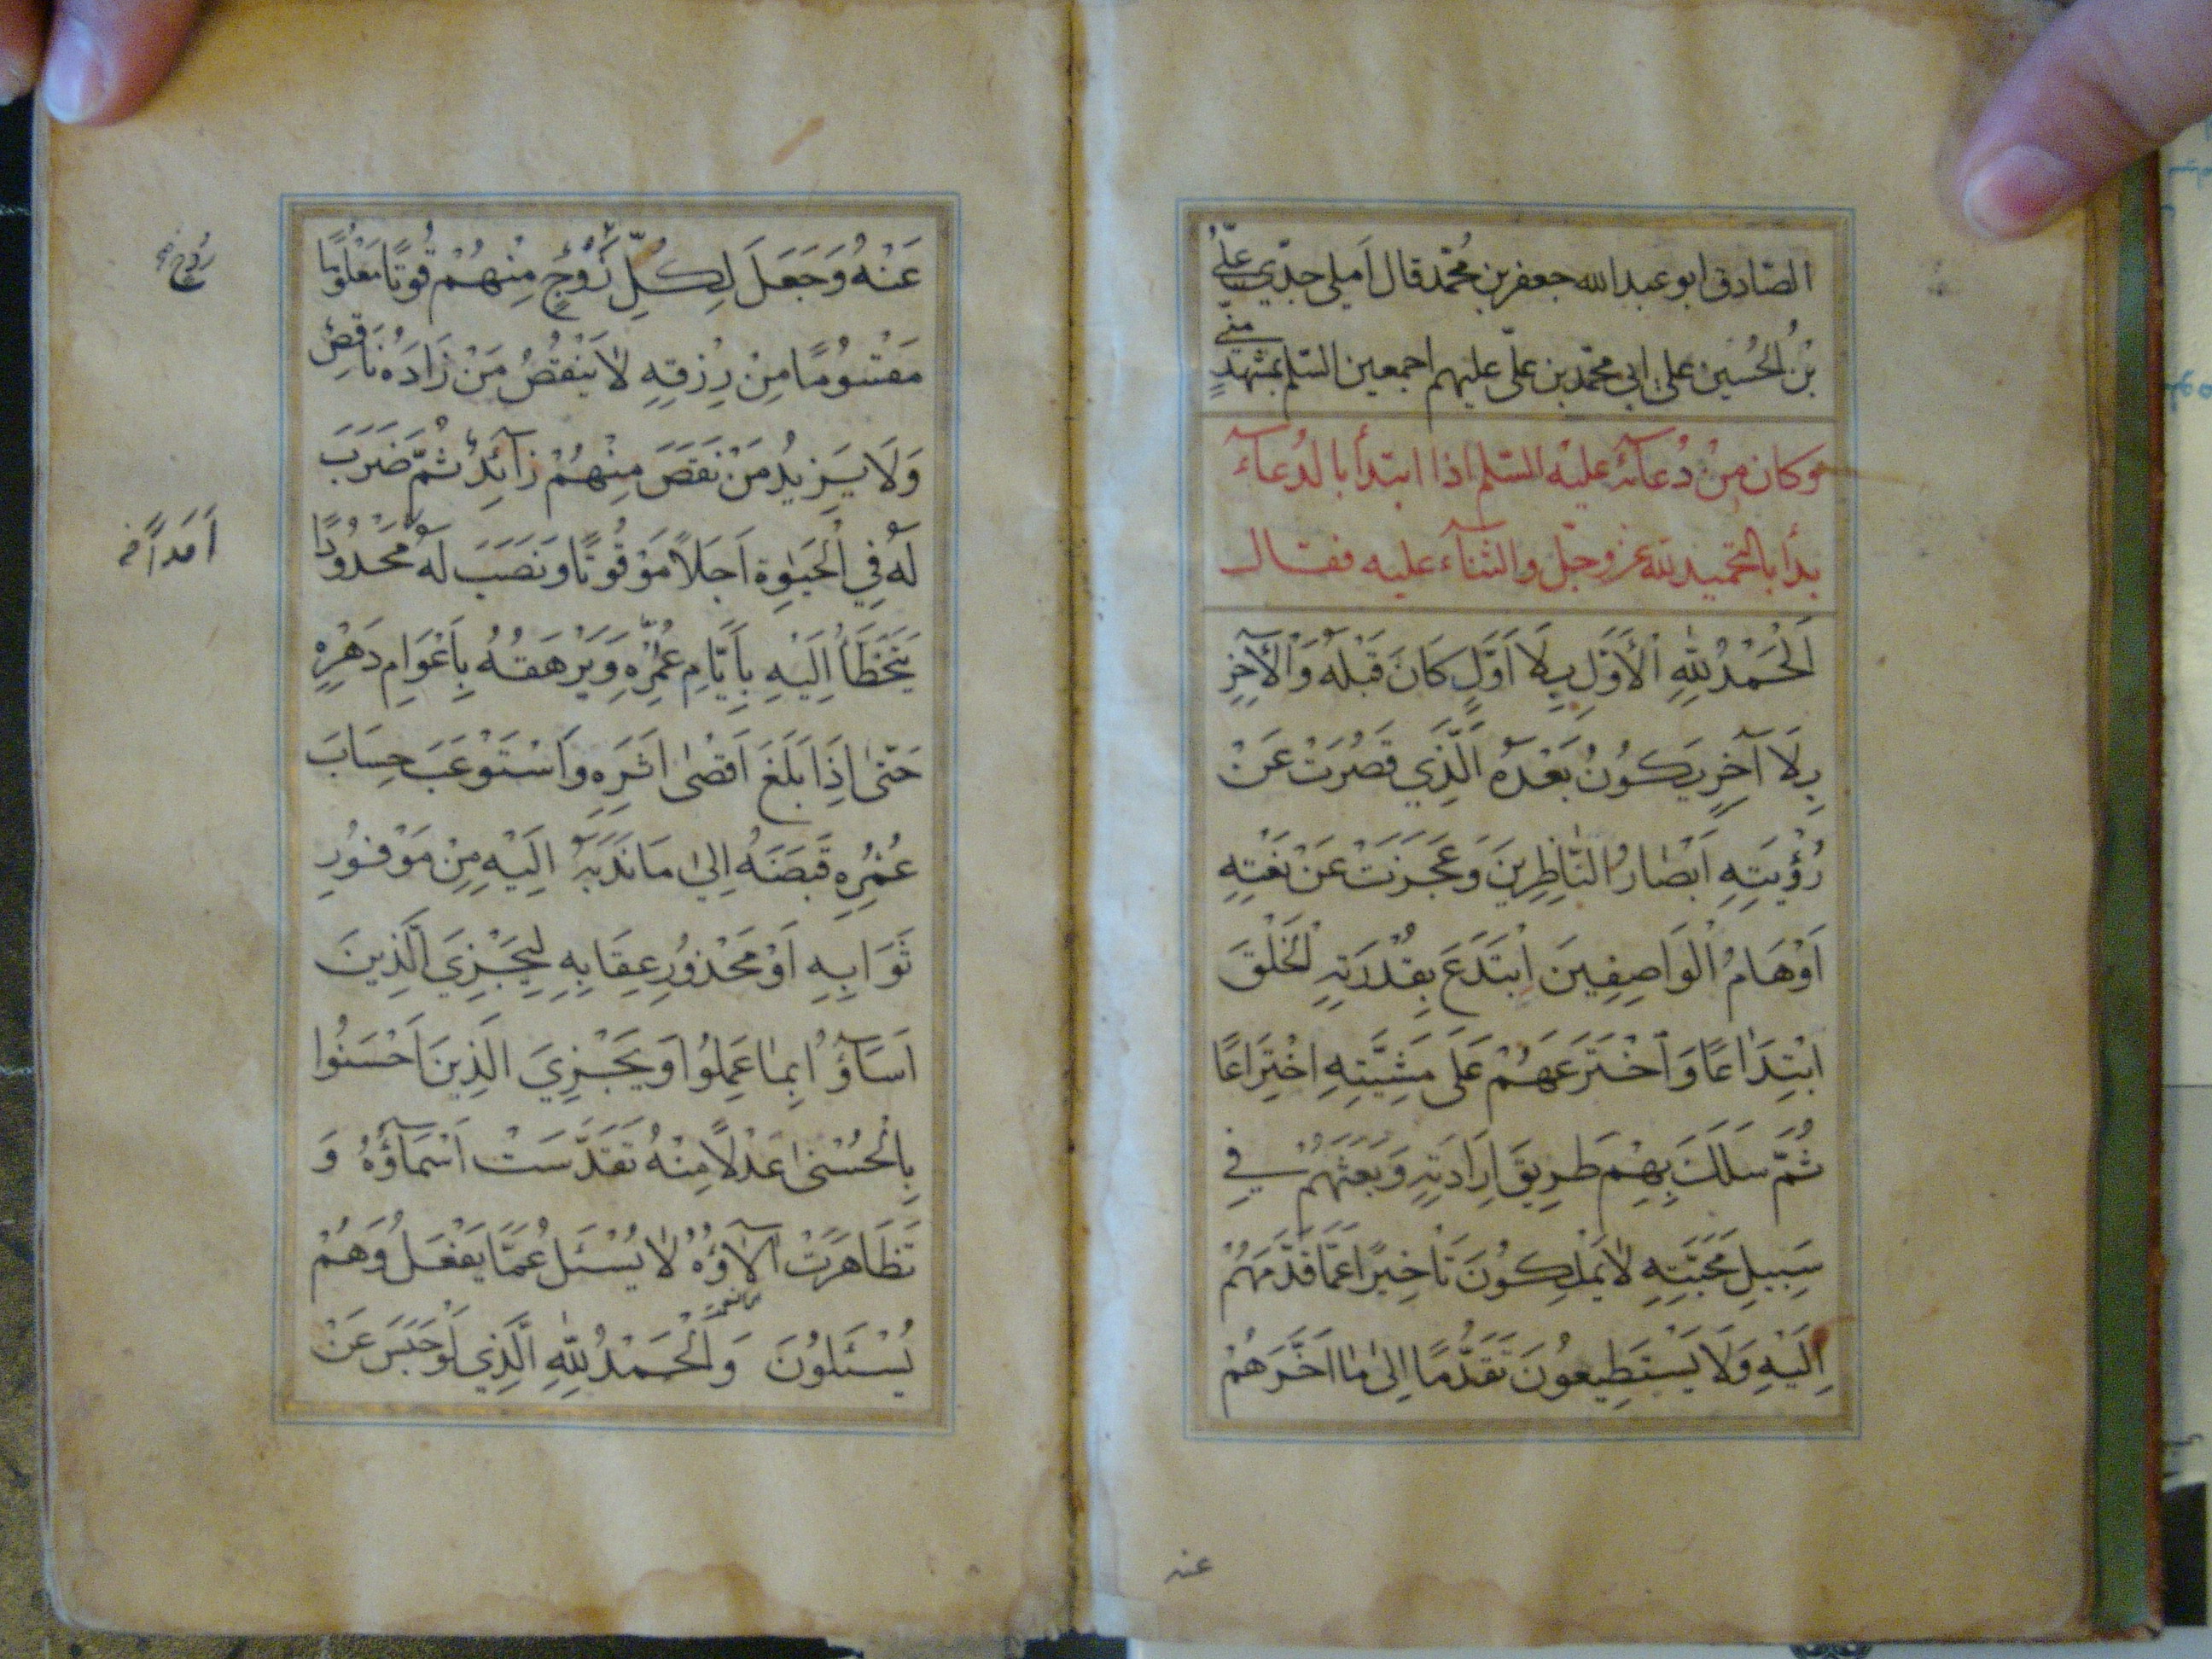 الصّادق ابو عبدالله جعفر بن محمّد قال املى جدّي عليّ
بن الحسين على ابي محمّد بن عليّ عليهم اجمعين السّلم بمشهد منّي
وكان من دعآئه عليه السّلم اذا ابتدأ بالدعآء
بدأ بالتحميد لله عزّ وجلّ والثنآء عليه فقال
اَلْحَمْدُ لِلّٰهِ الْاَوَّلِ بِلَا اَوَّلٍ كَانَ قَبْلَهُ وَالْآخِرِ
بِلَا آخِرٍ يَكُونُ بَعْدَهُ الَّذِي قَصُرَتْ عَنْ
رُؤْيَتِهِ اَبْصَارُ النَّاظِرِينَ وَعَجَزَتْ عَنْ نَعْتِهِ
اَوْهَامُ الْوَاصِفِينَ ابْتَدَعَ بِقُدْرَتِهِ الْخَلْقَ
ابْتِدَاعًا وَاخْتَرَعَهُمْ عَلَى مَشِيَّتِهِ اخْتِرَاعًا
ثُمَّ سَلَكَ بِهِمْ طَرِيقَ اِرَادَتِهِ وَبَعَثَهُمْ فِي
سَبِيلِ مَحَبَّتِهِ لَا يَمْلِكُونَ تَاْخِيرًا عَمَّا قَدَّمَهُمْ
اِلَيْهِ وَلَا يَسْتَطِيعُونَ تَقَدُّمًا اِلٰى مَا اَخَّرَهُمْ
عنه
عَنْهُ وَجَعَلَ لِكُلِّ زَوْجٍ مِنْهُمْ قُوتًا مَعْلُومًا
رُوحٍ خ
مَقْسُومًا مِنْ رِزْقِهِ لَا يَنْقُصُ مَنْ زَادَهُ نَاقِصٌ
وَلَا يَزِيدُ مَنْ نَقَصَ مِنْهُمْ زَآئِدٌ ثُمَّ ضَرَبَ
لَهُ فِي الْحَيٰوةِ اَجَلًا مَوْقُوتًا وَنَصَبَ لَهُ مَحْدُودًا
اَمَدًا خ
يَتَخَطَّأُ اِلَيْهِ بِاَيَّامِ عُمُرِهِ وَيَرْهَقُهُ بِاَعْوَامِ دَهْرِهِ
حَتّٰى اِذَا بَلَغَ اَقْصٰى اَثَرِهِ وَاسْتَوْعَبَ حِسَابَ
عُمُرِهِ قَبَضَهُ اِلٰى مَا نَدَبَهُ اِلَيْهِ مِنْ مَوْفُورِ
ثَوَابِهِ اَوْ مَحْذُورِ عِقَابِهِ لِيَجْزِيَ الَّذِينَ
اَسَآؤُا بِمَا عَمِلُوا وَيَجْزِيَ الَّذِينَ اَحْسَنُوا
بِالْحُسْنٰى عَدْلًا مِنْهُ تَقَدَّسَتْ اَسْمَآؤُهُ وَ
تَظَاهَرَتْ آلَاؤُهُ لَا يُسْئَلُ عَمَّا يَفْعَلُ وَهُمْ
يُسْئَلُونَ وَالْحَمْدُ لِلّٰهِ الَّذِي لَوْ حَبَسَ عَنْ